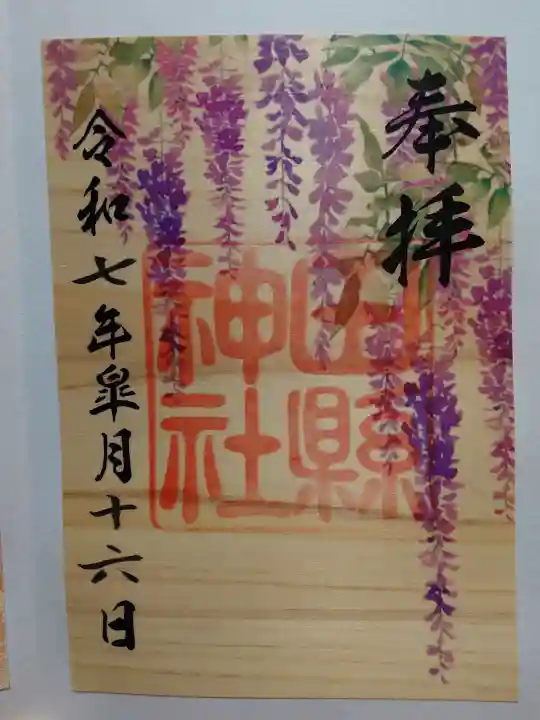 奉拝
田縣
神社
令和七年皐月十六日